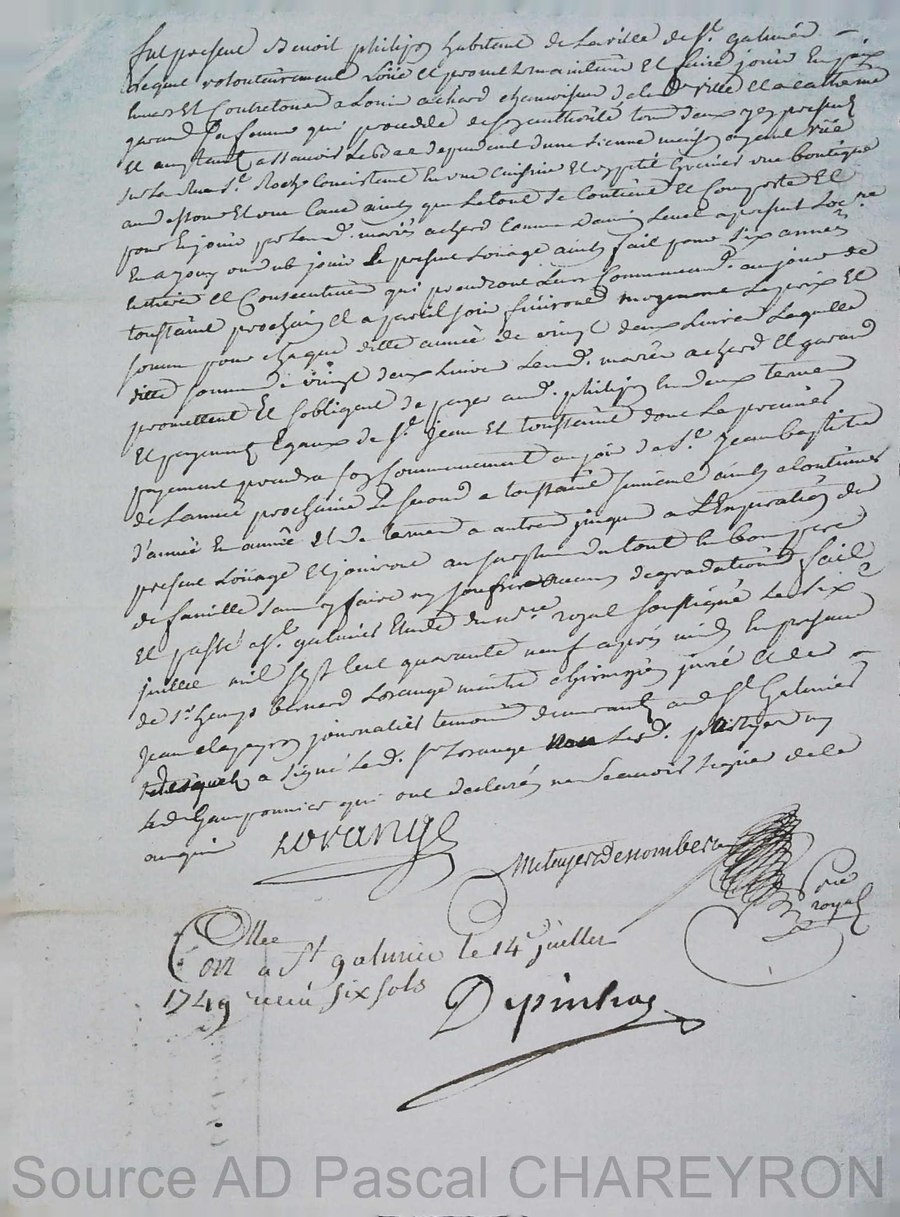 fut present Benoit philipon habitant de la ville de St. galmier
lequel volontairement Loüe et promet maintenir et faire jouir en paix
envers et Contre tous a Louis achard chanvrier de lad. ville et a catherine
garand sa femme qui procedde de son authorité tous deux icy present
et acceptant assavoir le bas dependant d'une sienne maison ayant vüe
sur la Rue St. Roch Consistant en une Cuisine et
au dessous et une Cave ainsy que le tout se Contient et Comporte et
pour en jouir par lesd. mariés achard Comme
en a jouy ou dub jouir le present Loüage ainsy fait pour six années
entiere et Consecutives qui prendront leur Commencemt. au jour de
toussaint prochain et a pareil jour finiront moyenant le prix et
somme pour chaque ditte année de vingt deux Livres Laquelle
ditte somme de vingt deux Livres lesd. mariés achard et garand
promettent et sobligent de payer aud. philipon en deux termes
et payement Egaux de St. jean et toussaint dont le premier
payement prendra son Commencement au jour de St. jean baptiste
de Lannée prochaine le second a toussaint suivant ainsy a Continuer
d'année en année et de termes a autres jusques a L'Expiration du
present Loüage et jouiront au surplus du tout en bon pere
de famille sans y faire ny souffrir aucunes degradations fait
et passé a St. galmier Etude du nore. royal soussigné le six
juillet mil sept cent quarante neuf apres midy en presence
de Sr. bernard Lorange maitre chirurgien juré et de
jean clapeyron journalier temoins demeurants aud. St. Galmier
desquels a signé led. Sr. Lorange non lesd. parties ny
qui ont declarés ne scavoir signer de ce
enquis Lorange
nore
royal
Collee
Con a St galmier le 14e juillet
1749 receu six sols
Depinhac
Source AD Pascal CHAREYRON